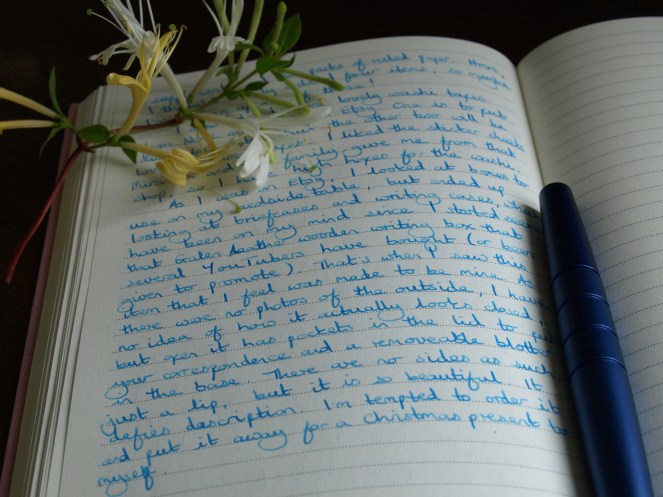 packs of ruled paper. Hmm,
four items, no
lovely washi tapes
Etsy. One is to put
the other two will be
I liked the sticker sheets
family gave me from that
so I high hopes for the washi.
As I was on Etsy, I looked at boxes to
use on my bedside table, but ended up
looking at briefcases and writing cases,
have been on my mind since I started
that Galen Leather wooden writing box that
several YouTubers have bought (or been
given to promote). That's when I saw this
item that I feel was made to be mine. As
there were no photos of the outside, I have
no idea of how it actually looks closed,
but open it has pockets in the lid to put
your correspondence and a removeable blotter
in the base. There are no sides as such,
just a lip, but it is so beautiful. It
defies description. I'm tempted to order it
and put it away for a Christmas present to
myself.